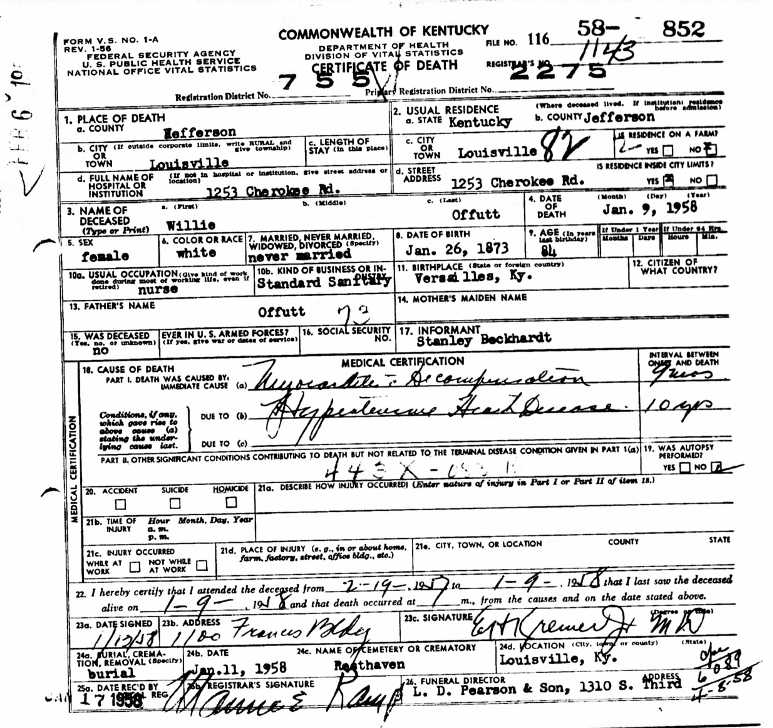 FORM V.S. NO. 1-A
REV. 1-56
FEDERAL SECURITY AGENCY
U. S. PUBLIC HEALTH SERVICE
NATIONAL OFFICE VITAL STATISTICS
COMMONWEALTH OF KENTUCKY
DEPARTMENT OF HEALTH
DIVISION OF VITAL STATISTICS
CERTIFICATE OF DEATH
FILE NO. 116 58- 852
1143
REGISTRAR'S NO. 2275
Registration District No. 755 Primary Registration District No.
1. PLACE OF DEATH
a. COUNTY
Jefferson
2. USUAL RESIDENCE (Where deceased lived. If institution: residence before admission)
a. STATE Kentucky b. COUNTY Jefferson
b. CITY (If outside corporate limits, write RURAL and give township)
OR
TOWN Louisville
c. LENGTH OF STAY (in this place)
c. CITY
OR
TOWN Louisville 82
IS RESIDENCE ON A FARM?
YES NO
d. FULL NAME OF (If not in hospital or institution, give street address or location)
HOSPITAL OR
INSTITUTION 1253 Cherokee Rd.
d. STREET
ADDRESS 1253 Cherokee Rd.
IS RESIDENCE INSIDE CITY LIMITS?
YES NO
3. NAME OF
DECEASED
(Type or Print)
a. (First) b. (Middle) c. (Last)
Willie Offutt
4. DATE
OF
DEATH
(Month) (Day) (Year)
Jan. 9, 1958
5. SEX
female
6. COLOR OR RACE
white
7. MARRIED, NEVER MARRIED,
WIDOWED, DIVORCED (Specify)
never married
8. DATE OF BIRTH
Jan. 26, 1873
9. AGE (In years last birthday)
84
If Under 1 Year
Months Days
If Under 24 Hrs.
Hours Min.
10a. USUAL OCCUPATION (Give kind of work done during most of working life, even if retired)
nurse
10b. KIND OF BUSINESS OR INDUSTRY
Standard Sanitary
11. BIRTHPLACE (State or foreign country)
Versailles, Ky.
12. CITIZEN OF
WHAT COUNTRY?
13. FATHER'S NAME
Offutt
14. MOTHER'S MAIDEN NAME
15. WAS DECEASED EVER IN U. S. ARMED FORCES?
(Yes, no, or unknown) (If yes, give war or dates of service)
no
16. SOCIAL SECURITY
NO.
17. INFORMANT
Stanley Beckhardt
18. CAUSE OF DEATH
MEDICAL CERTIFICATION
INTERVAL BETWEEN
ONSET AND DEATH
PART I. DEATH WAS CAUSED BY:
IMMEDIATE CAUSE (a) Decompensation 9 mos
Conditions, if any,
which gave rise to
above cause (a)
stating the under-
lying cause last.
DUE TO (b) Hypertensive Heart Disease. 10 yrs
DUE TO (c)
PART II. OTHER SIGNIFICANT CONDITIONS CONTRIBUTING TO DEATH BUT NOT RELATED TO THE TERMINAL DISEASE CONDITION GIVEN IN PART 1(a)
443X
19. WAS AUTOPSY
PERFORMED?
YES NO
MEDICAL CERTIFICATION
20. ACCIDENT SUICIDE HOMICIDE
21a. DESCRIBE HOW INJURY OCCURRED? (Enter nature of injury in Part I or Part II of item 18.)
21b. TIME OF
INJURY
Hour Month, Day, Year
a. m.
p. m.
21c. INJURY OCCURRED
WHILE AT
WORK
NOT WHILE
AT WORK
21d. PLACE OF INJURY (e. g., in or about home,
farm, factory, street, office bldg., etc.)
21e. CITY, TOWN, OR LOCATION COUNTY STATE
22. I hereby certify that I attended the deceased from 2-19-, 1957 to 1-9-, 1958 that I last saw the deceased
alive on 1-9-, 1958 and that death occurred at m., from the causes and on the date stated above.
23a. DATE SIGNED
1/12/58
23b. ADDRESS
1100 Francis Bldg
23c. SIGNATURE (Degree or title)
Kremer Jr MD
24a. BURIAL, CREMA-
TION, REMOVAL (Specify)
burial
24b. DATE
Jan. 11, 1958
24c. NAME OF CEMETERY OR CREMATORY
Resthaven
24d. LOCATION (City, town, or county) (State)
Louisville, Ky.
25a. DATE REC'D BY
LOCAL REG.
JAN 17 1958
25b. REGISTRAR'S SIGNATURE
26. FUNERAL DIRECTOR ADDRESS
L. D. Pearson & Son, 1310 S. Third
4-8-58